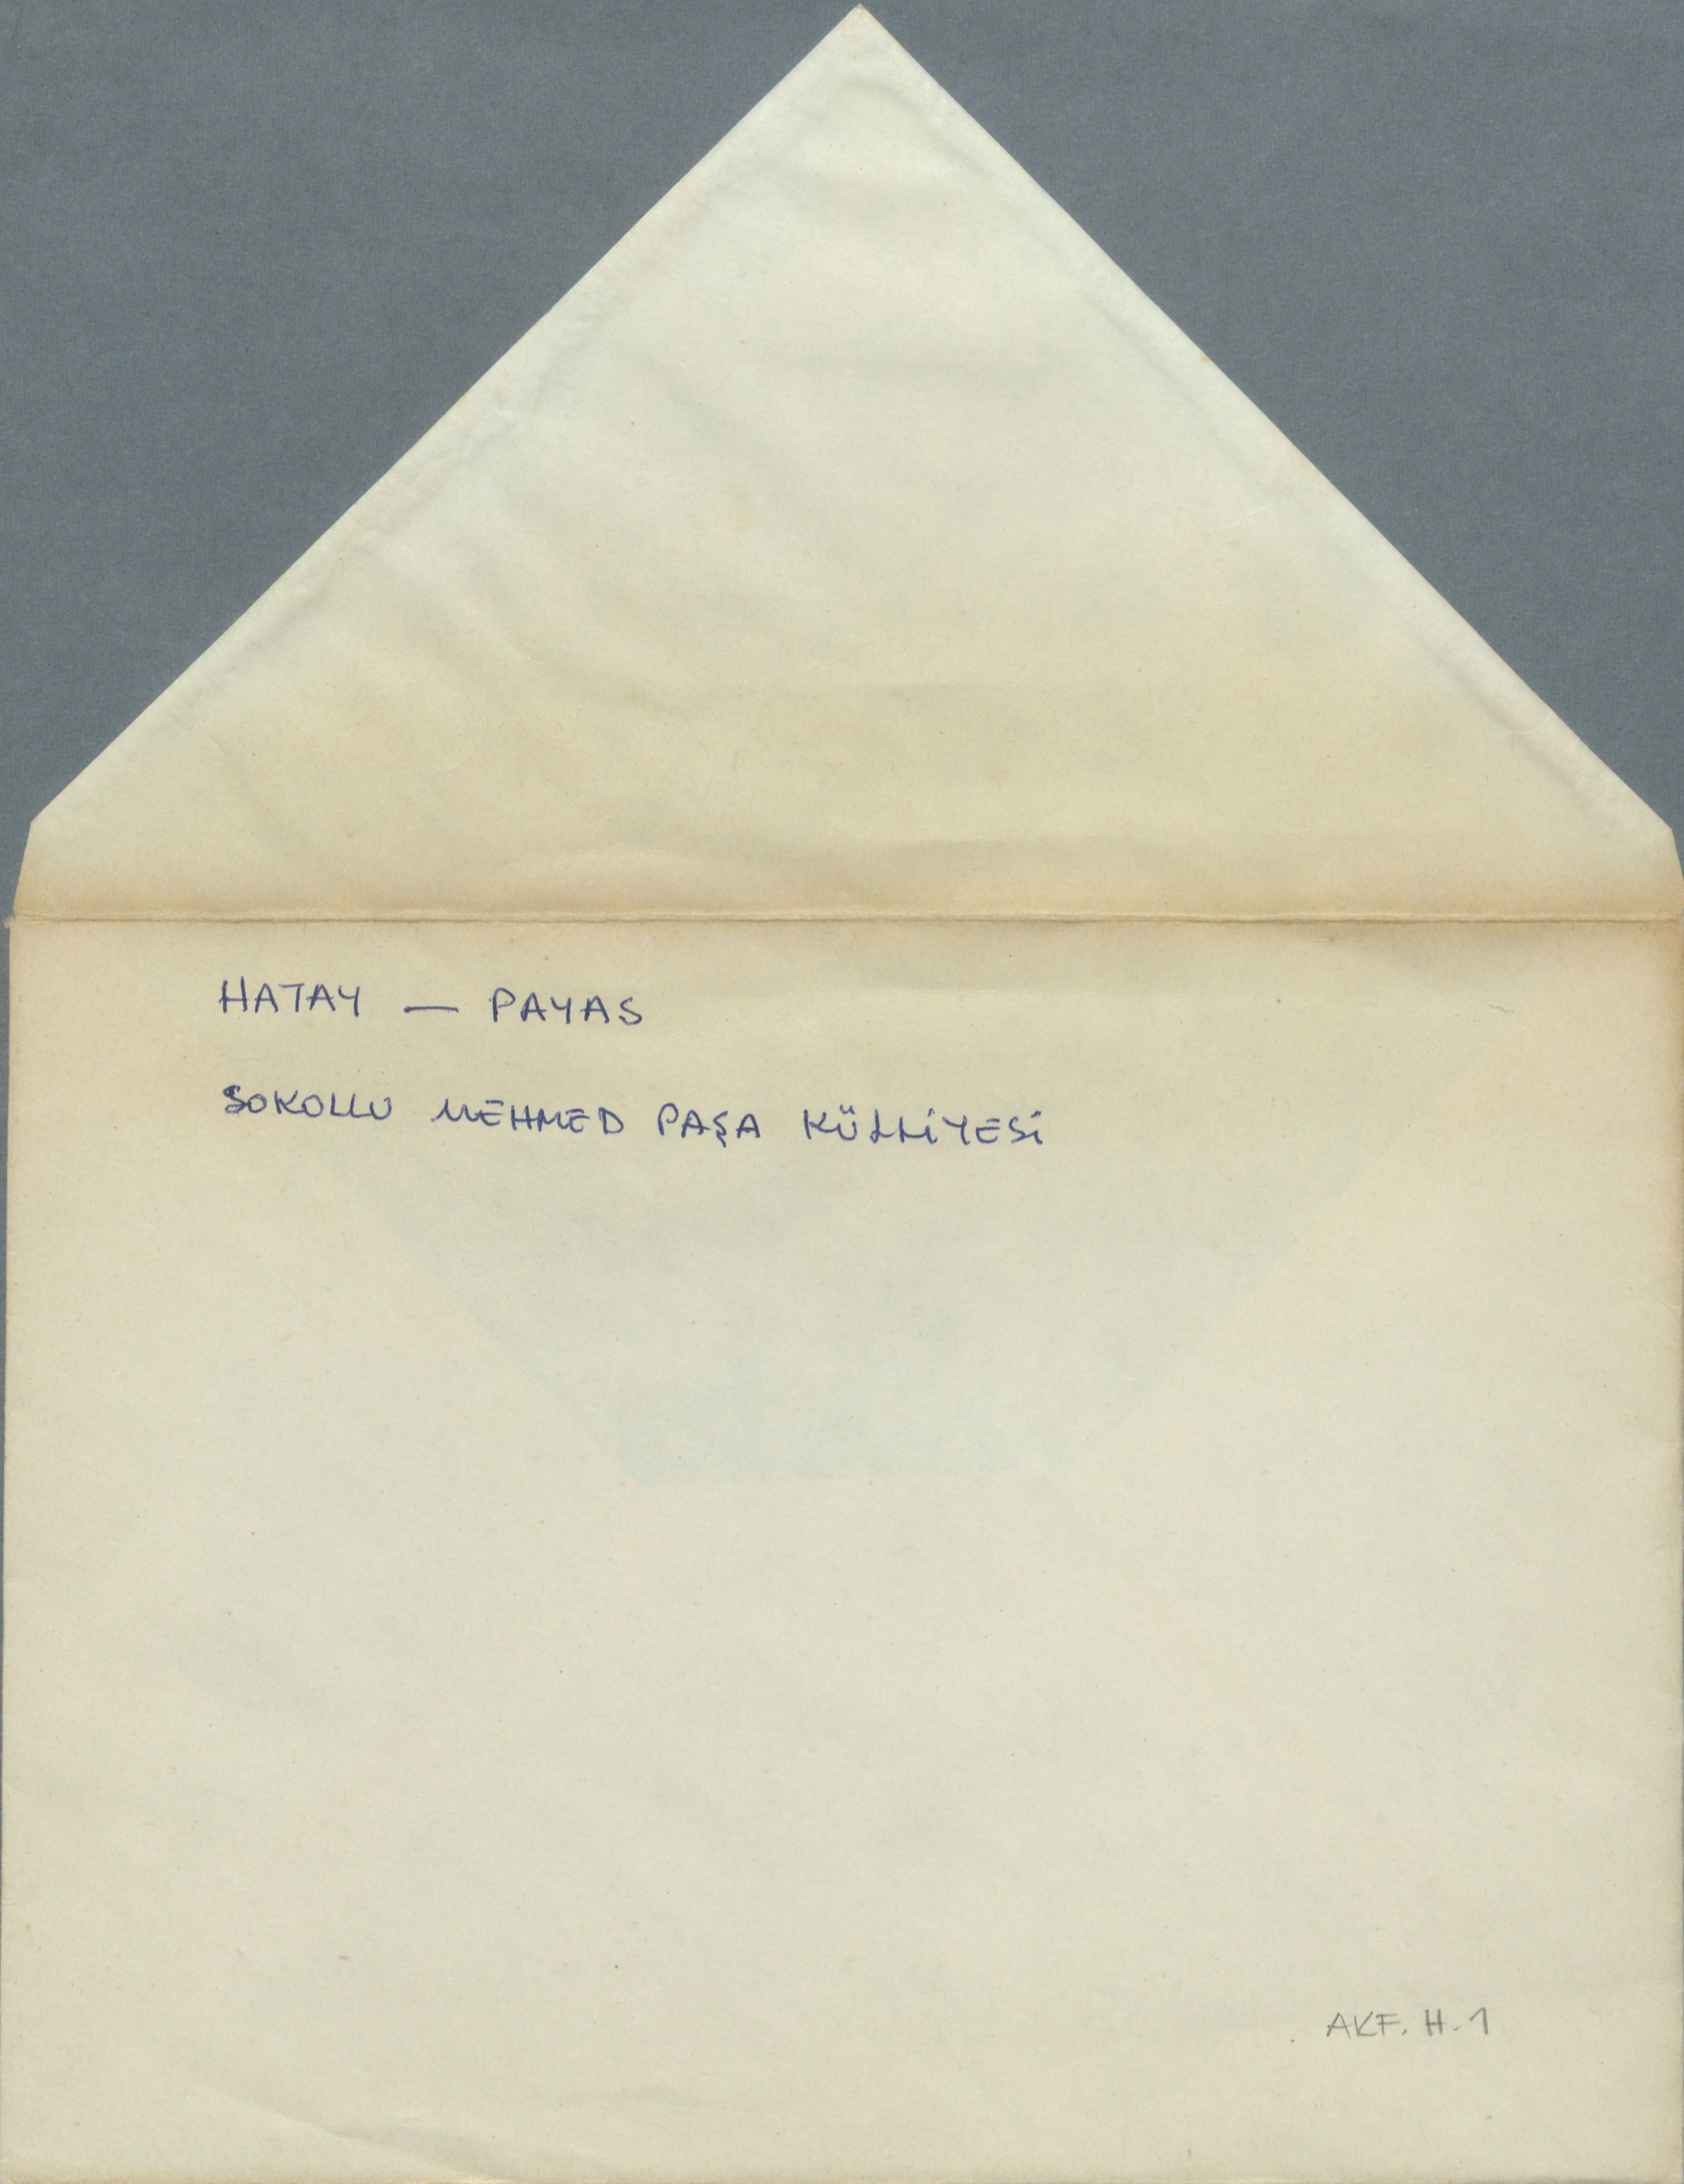 HATAY — PAYAS
SOKOLLU MEHMED PAŞA KÜLLİYESİ
AKF. H. 1